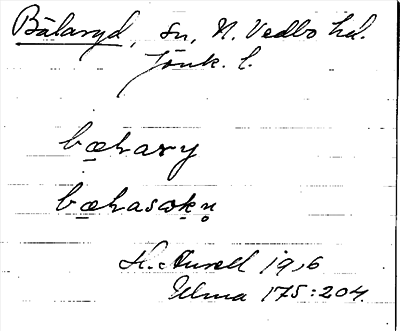 Bälaryd, sn, N. Vedbo hd.
Jönk. l.
bæhary
bæhasokn̥
H. Aurell 1916
Ulma 175:204.